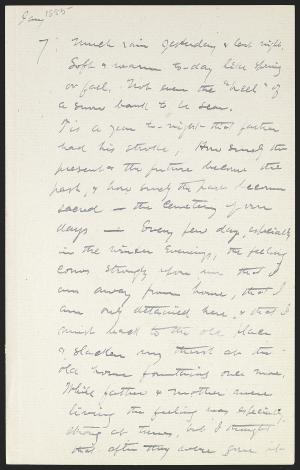 Jany 1885
7 Much rain yesterday & last night.
Soft & warm to-day like spring
or fall. Not even the "heel" of
a snow bank to be seen.
Tis a year to-night that father
had his stroke, How surely the
present & the future become the
past, & how surely the past becomes
sacred — the cemetery of our
days — Every few days, especially
in the winter evenings, the feeling
comes strongly upon me that I
am away from home, that I
am only detained here, & that I
must back to the old place
& slacken my thirst at the
old home fountains once more.
While father & mother were
living the feeling was especially
strong at times, but I thought
that after they were gone it